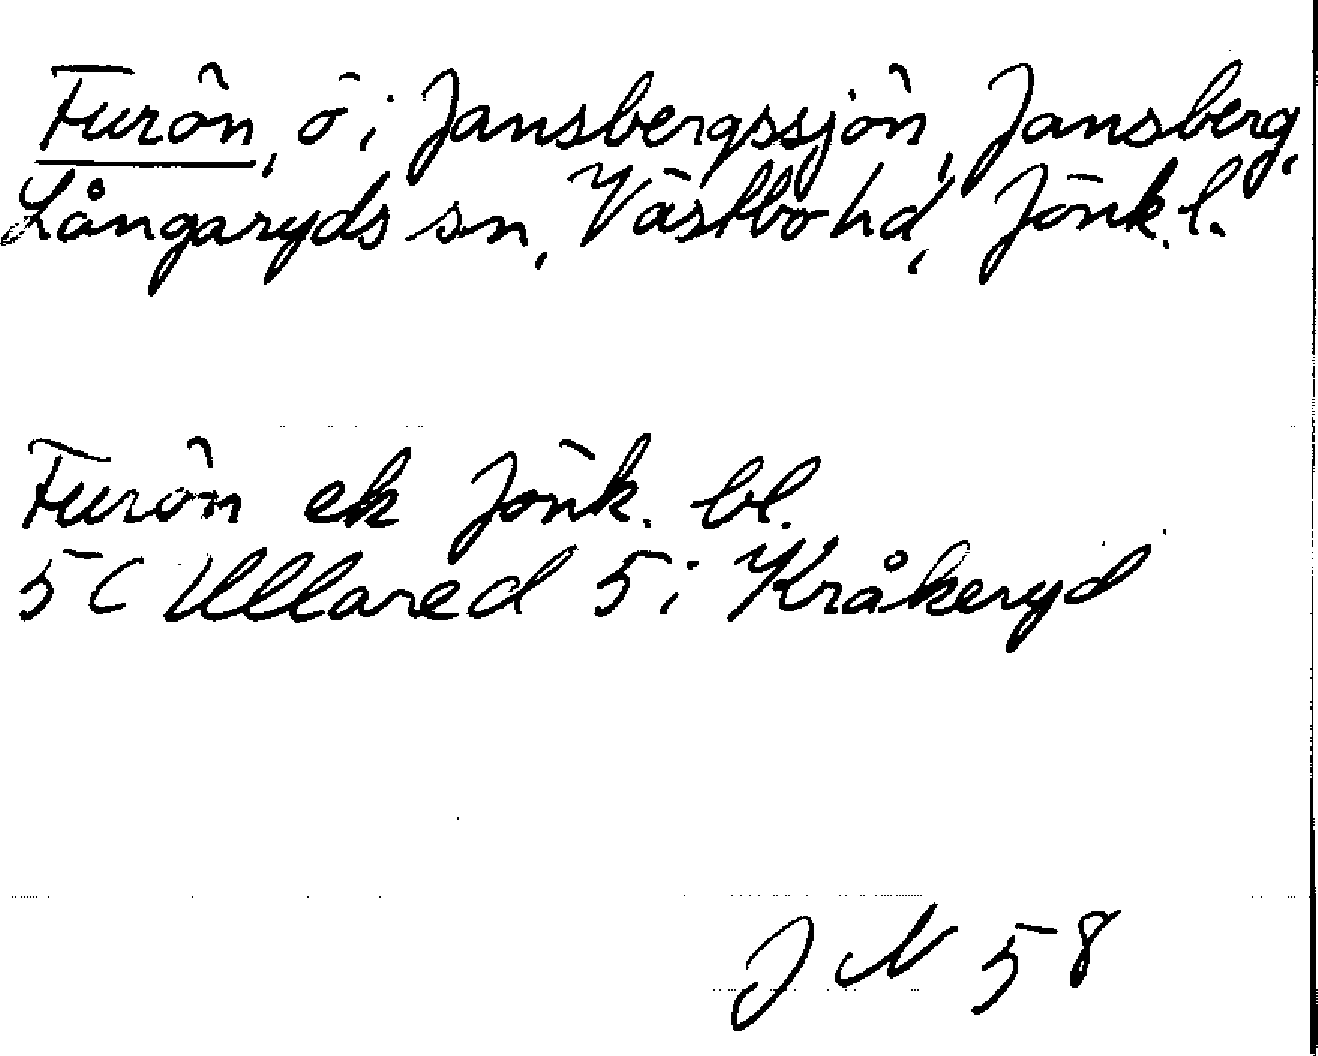 Furön, ö i Jansbergssjön, Jansberg,
Långaryds sn, Västbo hd, Jönk. l.
Furön ek Jönk. bl.
5C Ullared 5i Kråkeryd
J N 58